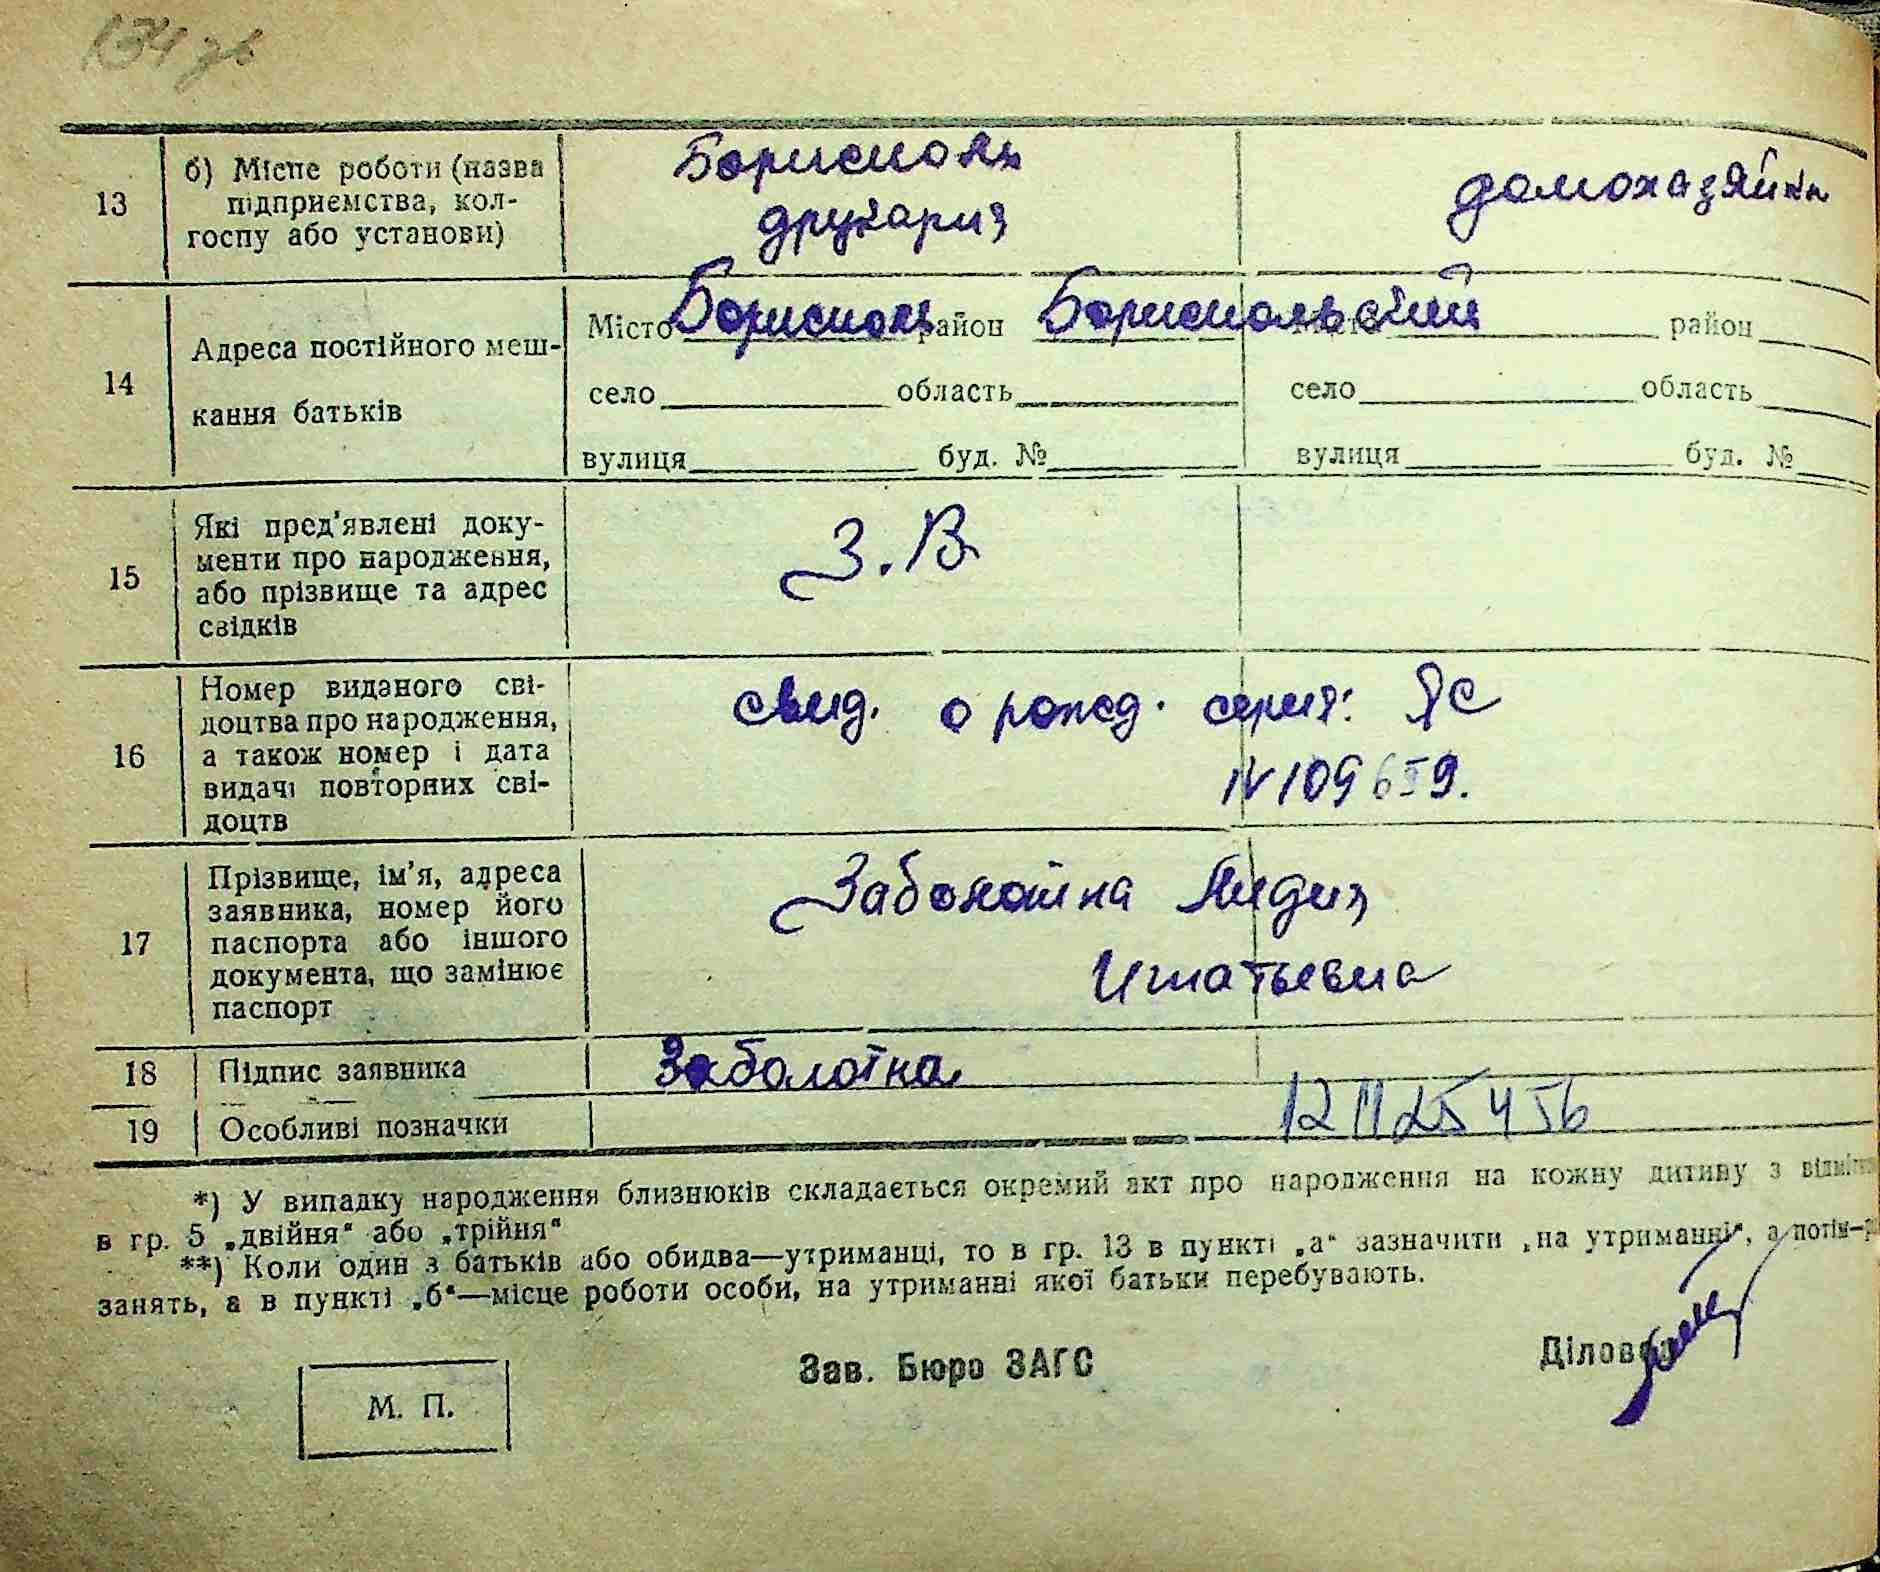 134 зв
13
б) Місце роботи (назва
підприємства, кол-
госпу або установи)
Борисполь
друкария
домохазяйка
14
Адреса постійного меш-
кання батьків
Місто Борисполь район Бориспольский
село область
вулиця буд. №
Місто район
село область
вулиця буд. №
15
Які пред'явлені доку-
менти про народження,
або прізвище та адрес
свідків
З.В.
16
Номер виданого сві-
доцтва про народження,
а також номер і дата
видачі повторних сві-
доцтв
свид. о рожд. серия: ЯС
IV 109659.
17
Прізвище, ім'я, адреса
заявника, номер його
паспорта або іншого
документа, що замінює
паспорт
Заболотна Лидия
Игнатьевна
18
Підпис заявника
Заболотна
19
Особливі позначки
*) У випадку народження близнюків складається окремий акт про народження на кожну дитину з
в гр. 5 „двійня“ або „трійня“
**) Коли один з батьків або обидва—утриманці, то в гр. 13 в пункті „а“ зазначити „на утриманні“, а потім—
занять, а в пункті „б“—місце роботи особи, на утриманні якої батьки перебувають.
М. П.
Зав. Бюро ЗАГС
Діловод